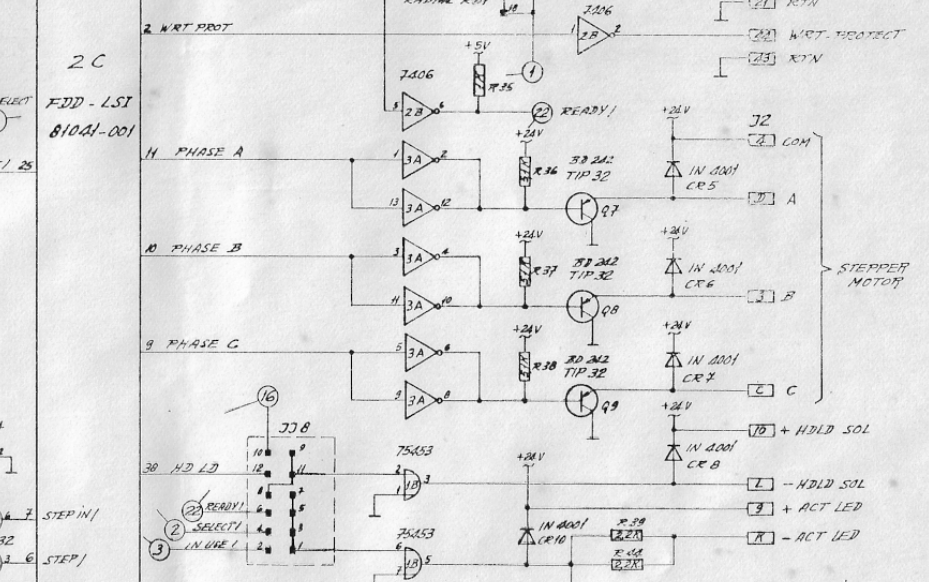 7406
21 RTN
2 WRT PROT
1 2B 2
22 WRT-PROTECT
23 RTN
18
+5V
R35
1
2C
FDD-LSI
81041-001
7406
5 2B 6
22 READY/
+24V
+24V
J2
4 COM
14 PHASE A
1 3A 2
R36
BD 242
TIP 32
IN 4001
CR5
25
13 3A 12
Q7
D A
+24V
+24V
10 PHASE B
3 3A 4
R37
BD 242
TIP 32
IN 4001
CR6
STEPPER
MOTOR
11 3A 10
Q8
3 B
+24V
+24V
9 PHASE C
5 3A 6
R38
BD 242
TIP 32
IN 4001
CR7
9 3A 8
Q9
C C
16
+24V
JJ8
10 9
10 + HDLD SOL
75453
+24V
IN 4001
CR 8
38 HD LD
12 11
2
1B 3
1
L - HDLD SOL
8 7
22 READY/
6 5
9 + ACT LED
7 STEP IN/
2 SELECT/
4 3
75453
IN 4001
CR10
R 39
2,2K
R - ACT LED
3 IN USE/
2 1
6
1B 5
7
2,2K
3 6 STEP/